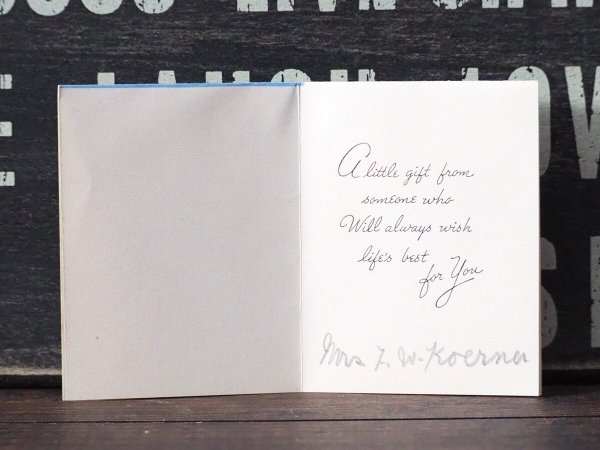 LIVE
LAUGH LOV
A little gift from
someone who
Will always wish
life's best
for You
Mrs Z. W. Koerner